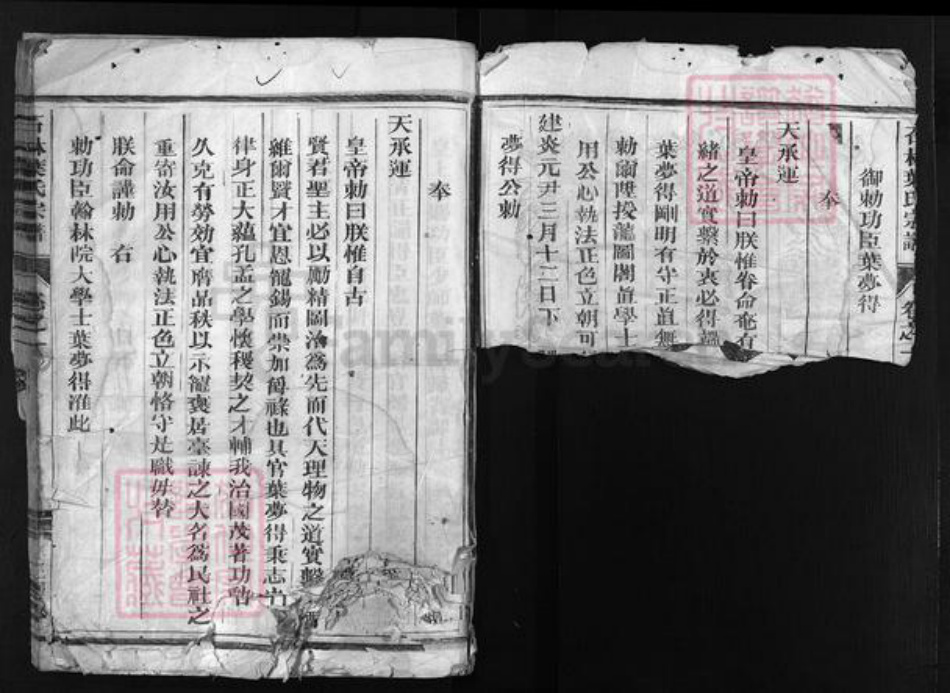 石林葉氏宗譜 卷之一
御勅功臣葉夢得
奉
天承運
皇帝勅曰朕惟眷命奄有
緒之道實繫於衷必得
葉夢得剛明有守正直無
勅爾陞授龍圖閣直學士
用公心執法正色立朝可
建炎元尹三月十二日下
夢得公勅
奉
天承運
皇帝勅曰朕惟自古
賢君聖主必以勵精圖治為先而代天理物之道實繫
雖爾賢才宜恩寵錫而崇加爵祿也具官葉夢得秉志
律身正大蘊孔孟之學懷稷契之才輔我治國茂著功
久克有勞効宜膺品秩以示寵褒居臺諫之大名為民社之
重寄汝用公心執法正色立朝恪守是職毋替
朕命謹勅 右
勅功臣翰林院大學士葉夢得准此
石林葉氏宗譜
FamilySearch